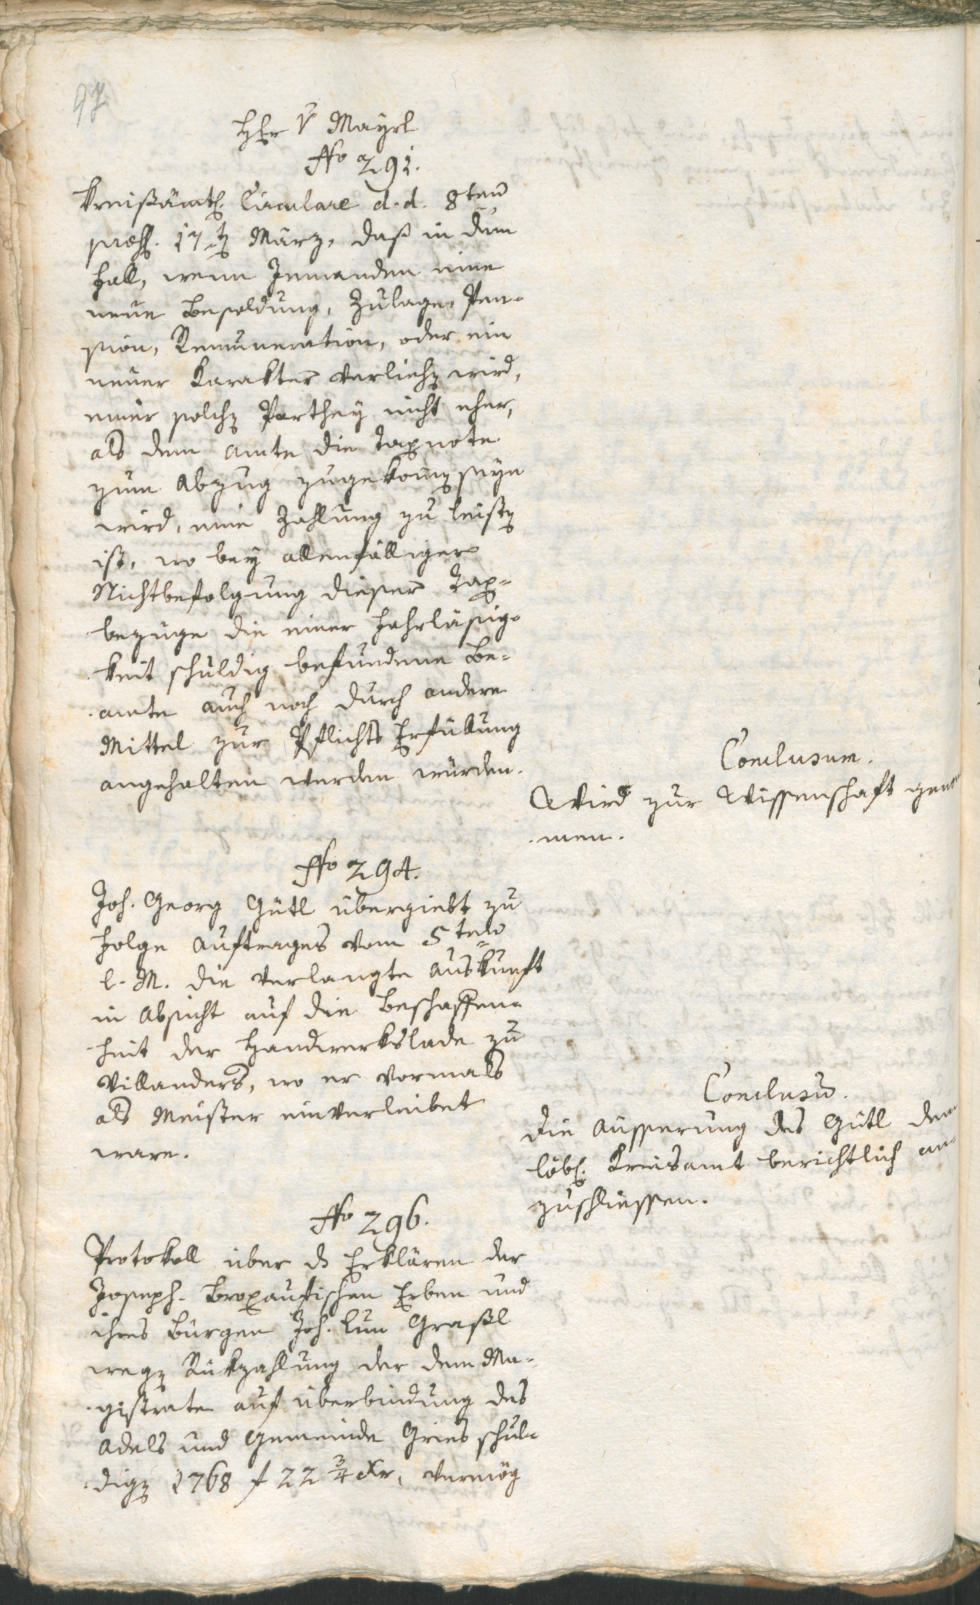 97
Hr v Mayrl
No 291.
Kreißämtl. Circulare d. d. 8ten
præs. 17t März, daß in dem
Fall, wenn Jemanden eine
neue Besoldung, Zulage, Pen-
sion, Remuneration, oder ein
neuer Karakter verliehen wird,
einer solchen Parthey nicht eher,
als dem Amte die Taxnote
zum Abzug zugekommen seyn
wird, eine Zahlung zu leisten
ist, wo bey allenfälliger
Nichtbefolgung dieser Tax-
bezüge die einer Fahrläßig-
keit schuldig befundene Be-
amte auch noch durch andere
Mittel zur Pflichts Erfüllung
angehalten werden würden.
Conclusum.
Wird zur Wissenschaft genom
men.
No 294.
Joh. Georg Gütl übergiebt zu
Folge Auftrages vom 5ten
l. M. die verlangte Auskunft
in Absicht auf die Beschaffen-
heit der Handwerkslade zu
Villanders, wo er vormals
als Meister einverleibet
ware.
Conclusum.
Die Äusserung des Gütl dem
löbl. Kreisamt berichtlich an
zuschliessen.
No 296.
Protokoll über ds Erklären der
Joseph. Broxaufischen Erben und
ihres Bürgen Joh. Graßl
wegen Rükzahlung der dem Ma-
gistrate auf Überbindung des
Adels und Gemeinde Gries schul-
digen 1768 f 22 3/4 Xr, vermög